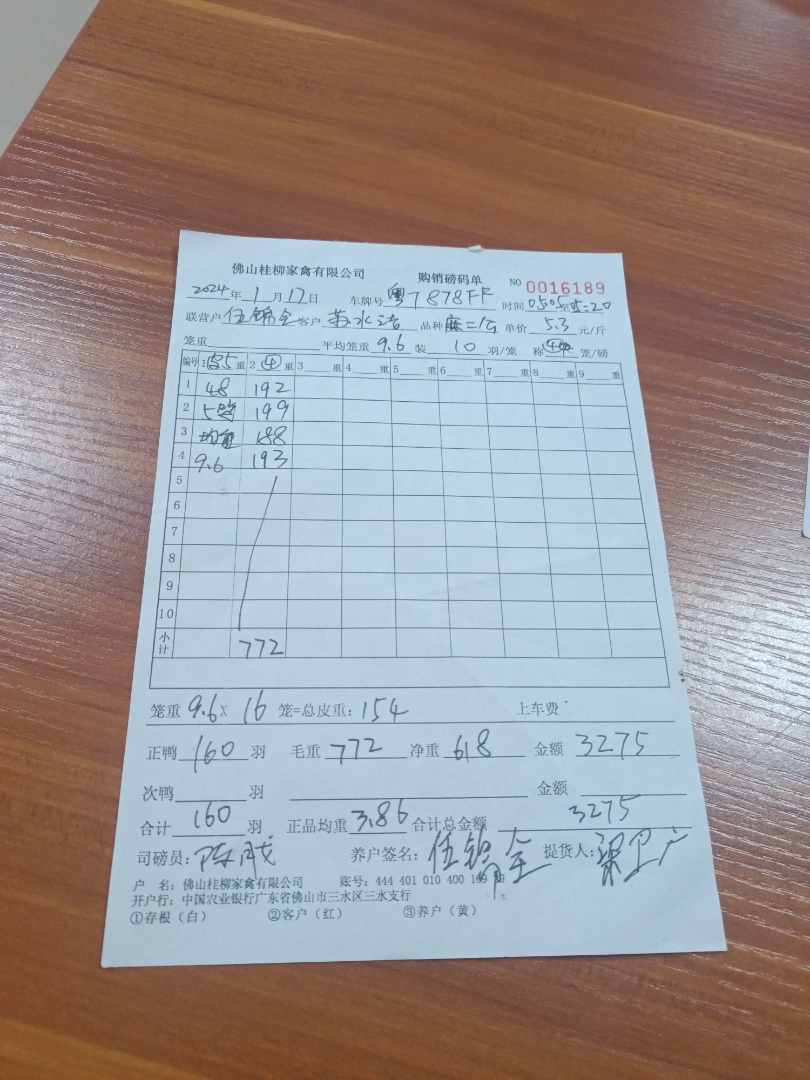 佛山桂柳家禽有限公司 购销磅码单 NO 0016189
2024年1月17日 车牌号 粤T878FF 时间 0505至5:20
联营户 任锦全 客户 苏水洁 品种 麻二公 单价 5.3 元/斤
笼重 平均笼重 9.6 装 10 羽/笼 称 ④ 笼/磅
编号 1 5 重 2 ④ 重 3 重 4 重 5 重 6 重 7 重 8 重 9 重
1 48 192
2 5 199
3 均重 188
4 9.6 193
5
6
7
8
9
10
小计 772
笼重 9.6 X 16 笼=总皮重: 154 上车费
正鸭 160 羽 毛重 772 净重 618 金额 3275
次鸭 羽 金额
合计 160 羽 正品均重 3.86 合计总金额 3275
司磅员: 养户签名: 任锦全 提货人:
户 名: 佛山桂柳家禽有限公司 账号: 444 401 010 400 1
开户行: 中国农业银行广东省佛山市三水区三水支行
①存根（白） ②客户（红） ③养户（黄）